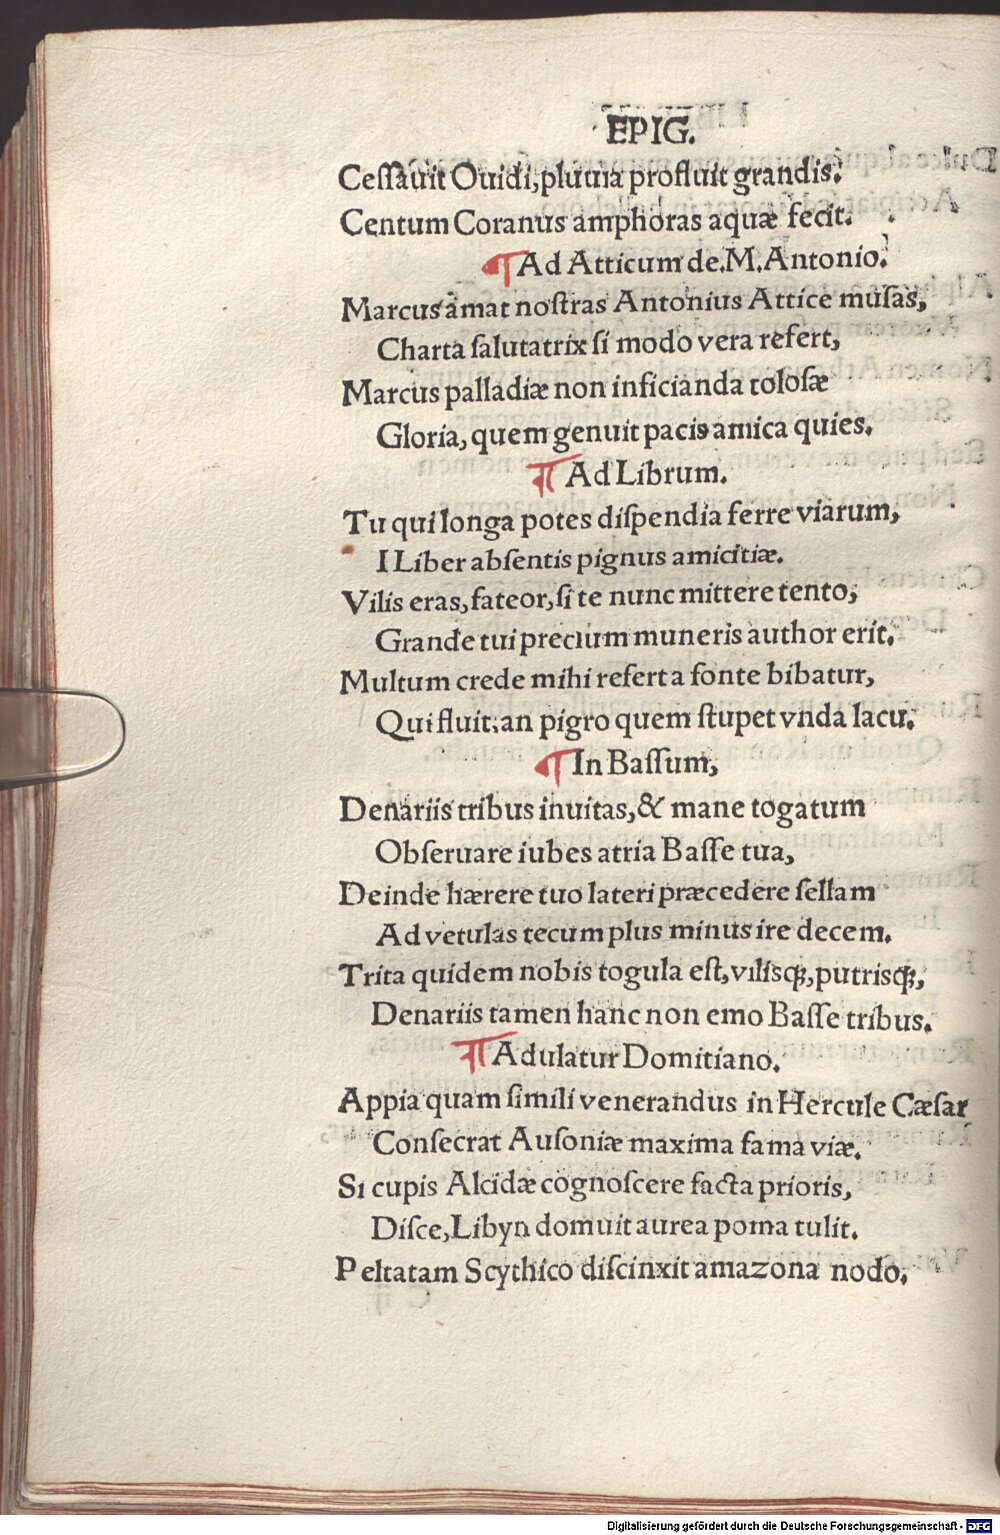 EPIG.
Cessauit Ouidi, pluuia profluit grandis.
Centum Coranus amphoras aquæ fecit.
¶ Ad Atticum de.M.Antonio.
Marcus amat noſtras Antonius Attice muſas,
Charta ſalutatrix ſi modo vera refert,
Marcus palladiæ non inficianda toloſæ
Gloria, quem genuit pacis amica quies.
¶ Ad Librum.
Tu qui longa potes diſpendia ferre viarum,
I Liber abſentis pignus amicitiæ.
Vilis eras, fateor, ſi te nunc mittere tento,
Grande tui precium muneris author erit.
Multum crede mihi refert a fonte bibatur,
Qui fluit: an pigro quem ſtupet vnda lacu.
¶ In Baſſum,
Denariis tribus inuitas, & mane togatum
Obſeruare iubes atria Baſſe tua,
Deinde hærere tuo lateri præcedere ſellam
Ad vetulas tecum plus minus ire decem.
Trita quidem nobis togula eſt, vilisqꝫ, putrisqꝫ,
Denariis tamen hanc non emo Baſſe tribus.
¶ Adulatur Domitiano.
Appia quam ſimili venerandus in Hercule Cæſar
Conſecrat Auſoniæ maxima fama viæ.
Si cupis Alcidæ cognoſcere facta prioris,
Diſce, Libyn domuit aurea poma tulit.
Peltatam Scythico diſcinxit amazona nodo,
Digitalisierung gefördert durch die Deutsche Forschungsgemeinschaft - DFG